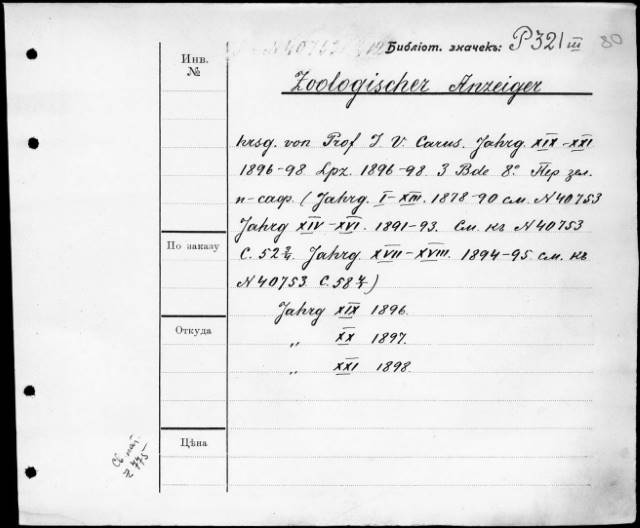 Библіот. значекъ: P 321 III 80
Инв. №
Zoologischer Anzeiger
hrsg. von Prof J. V. Carus. Jahrg. XIX-XXI
1896-98. Lpz. 1896-98. 3 Bde 8°. Пер зел.
п-саф. (Jahrg. I-XIII. 1878-90 см. N 40753
Jahrg XIV-XVI. 1891-93. См. кк N 40753
С. 52 Jahrg. XVII-XVIII. 1894-95 см. кк
N 40753. С. 58)
По заказу
Jahrg XIX 1896.
Откуда
„ XX 1897.
„ XXI 1898.
Цѣна